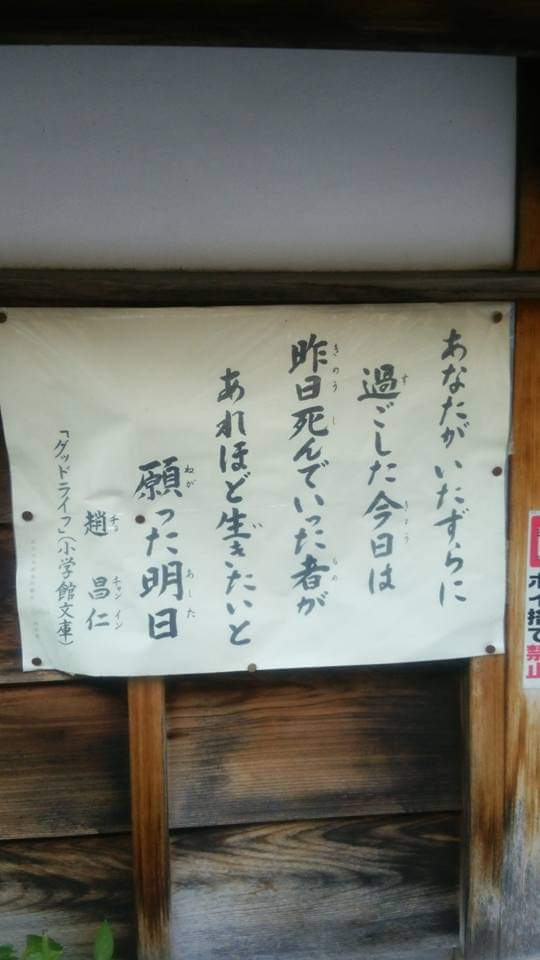 あなたがいたずらに
過ごした今日は
昨日死んでいった者が
あれほど生きたいと
願った明日
趙 昌仁
「グッドライフ」(小学館文庫)
ポイ捨て禁止